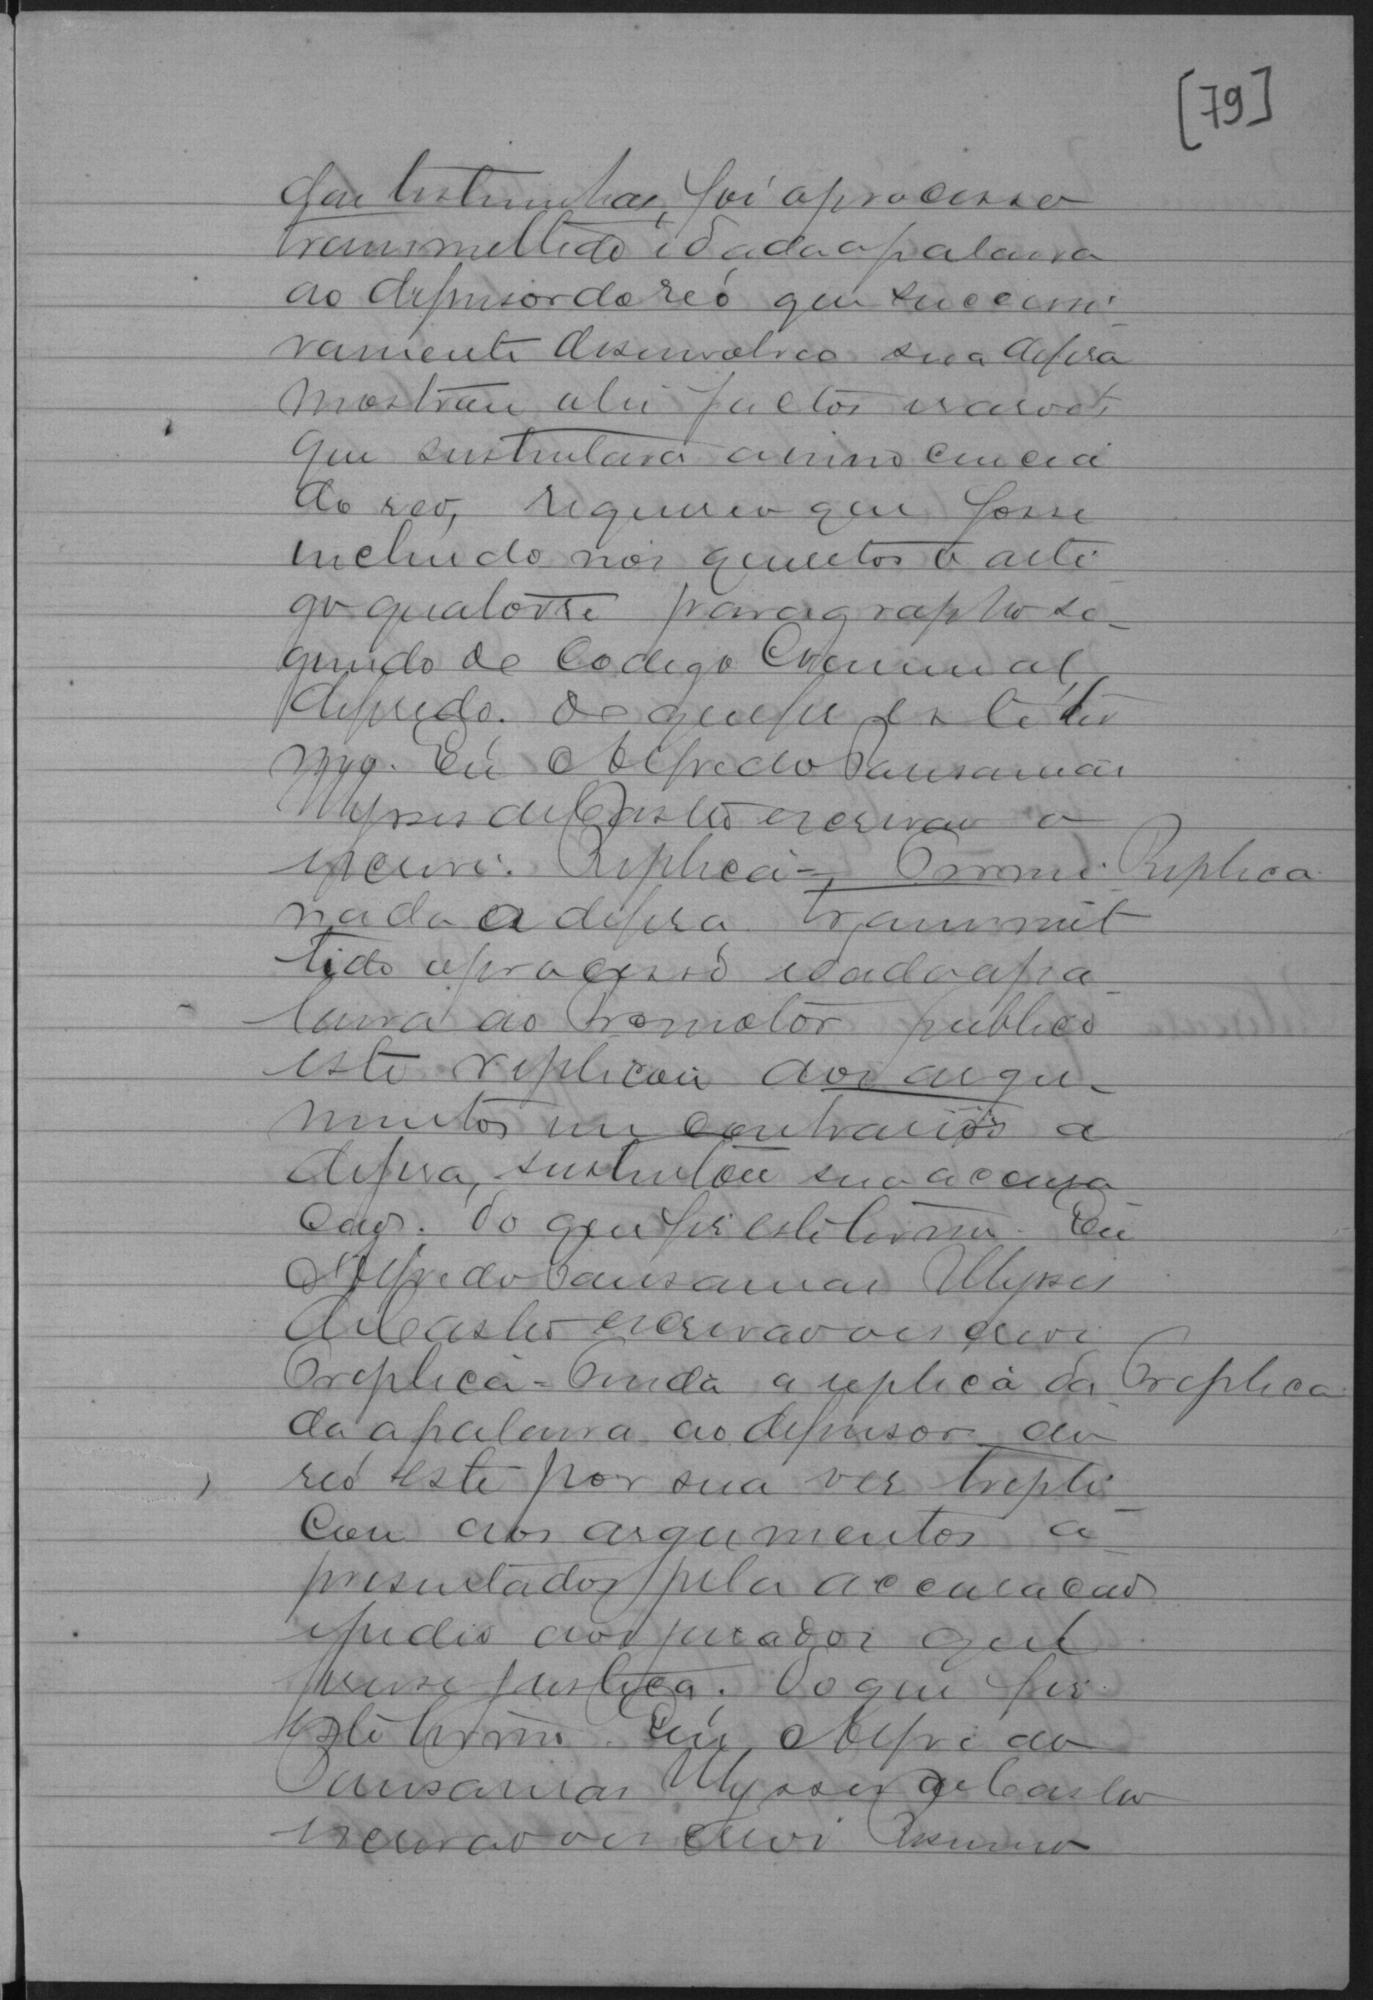 [79]
das testemunhas, foi o processo
transmettido e dada a palavra
ao defensor do reó que successi-
vamente desenvolveo sua defesa
mostrau factos
que sustentava a innocencia
do reo, requereo que fosse
incluido nos quesitos o arti
go quatorse paragrapho se-
gundo do Codigo Criminal
do que fis este ter
mo. Eu Alfredo Pausanias
Ulysses de Castro escrivao o
escrevi. Replica - Termi- Replica
nada a defesa transmit
tido o processo e dada a pa-
lavra ao Promotor publico
este replicou aos argu-
mentos em contrario a
defesa, sustentou sua accusa
cao. Do que fis este termo. Eu
Alfredo Pausanias Ulysses
de Castro escrivao o escrevi
Treplica - Finda a replica da Treplica
da a palavra ao defensor do
reó este por sua ves trepli-
cou aos argumentos a-
presentados pela accusacao
e pedio aos jurados que
fisesse justica. Do que fis
este termo. Eu Alfredo
Pausanias Ulysses de Castro
escrivao o escrevi Resumo